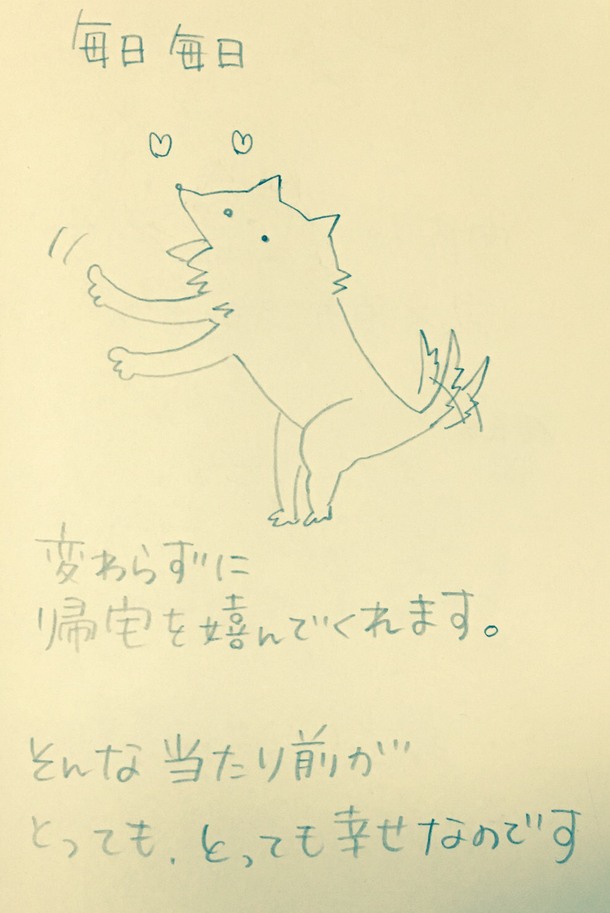 毎日毎日
変わらずに
帰宅を嬉んでくれます。
そんな当たり前が
とっても、とっても幸せなのです